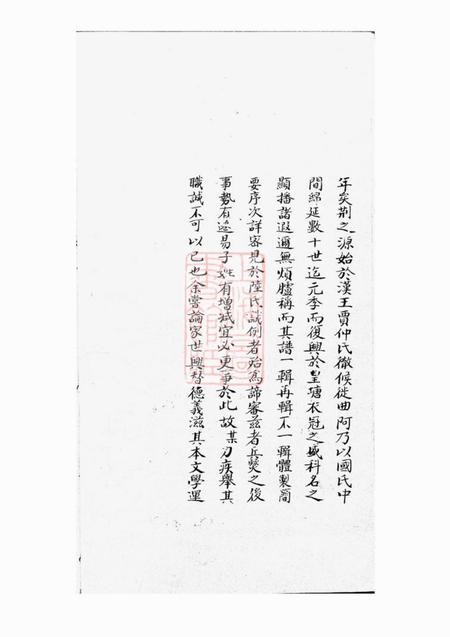 年矣荆之源始於漢王賈仲氏徹候從曲阿乃以國氏中
間綿延數十世迄元季而復興於皇塘衣冠之盛科名之
顯播諸遐邇無煩臚稱而其譜一輯再輯不一輯體製簡
要序次詳審見於陸氏諴例者殆為諦審兹者兵燹之後
事勢有迭易子姓有增減宜必更事於此故某刀疾舉其
職誠不可以已也余嘗論家世興替德義滋其本文學運